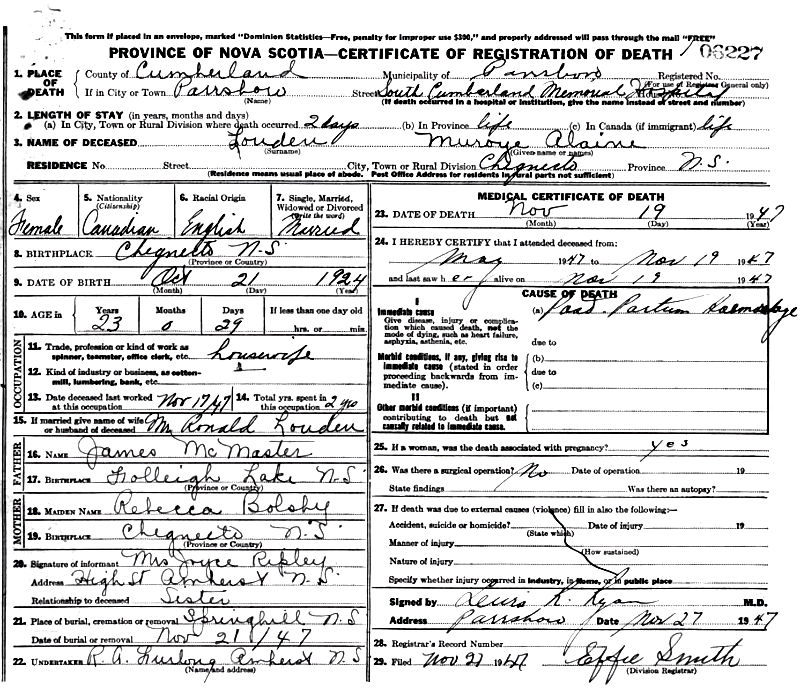 This form if placed in an envelope, marked "Dominion Statistics—Free, penalty for improper use $300," and properly addressed will pass through the mail "FREE"
PROVINCE OF NOVA SCOTIA—CERTIFICATE OF REGISTRATION OF DEATH 06227
1. PLACE OF DEATH County of Cumberland Municipality of Parrsboro Registered No.
(For use of Registrar General only)
If in City or Town Parrsboro Street South Cumberland Memorial Hospital
(Name) (If death occurred in a hospital or institution, give the name instead of street and number)
2. LENGTH OF STAY (in years, months and days)
(a) In City, Town or Rural Division where death occurred 2 days (b) In Province life (c) In Canada (if immigrant) life
3. NAME OF DECEASED Louden Alaine
(Surname) (Given name or names)
RESIDENCE No. Street City, Town or Rural Division Chegnecto Province N.S.
(Residence means usual place of abode. Post Office Address for residents in rural parts not sufficient)
4. Sex Female
5. Nationality (Citizenship) Canadian
6. Racial Origin English
7. Single, Married, Widowed or Divorced (Write the word) Married
8. BIRTHPLACE Chegnecto N.S.
(Province or Country)
9. DATE OF BIRTH Oct 21 1924
(Month) (Day) (Year)
10. AGE in Years 23 Months 0 Days 29 If less than one day old hrs. or min.
OCCUPATION
11. Trade, profession or kind of work as spinner, teamster, office clerk, etc. housewife
12. Kind of industry or business, as cotton-mill, lumbering, bank, etc.
13. Date deceased last worked at this occupation Nov 17/47 14. Total yrs. spent in this occupation 2 yrs
15. If married give name of wife or husband of deceased Mr Ronald Louden
FATHER
16. NAME James McMaster
17. BIRTHPLACE Folleigh Lake N.S.
(Province or Country)
MOTHER
18. MAIDEN NAME Rebecca
19. BIRTHPLACE Chegnecto N.S.
(Province or Country)
20. Signature of informant Mrs Joyce Ripley
Address High St Amherst N.S.
Relationship to deceased Sister
21. Place of burial, cremation or removal Springhill N.S
Date of burial or removal Nov 21/47
22. UNDERTAKER R. A. Furlong Amherst N S
(Name and address)
MEDICAL CERTIFICATE OF DEATH
23. DATE OF DEATH Nov 19 1947
(Month) (Day) (Year)
24. I HEREBY CERTIFY that I attended deceased from:
May 1947 to Nov 19 1947
and last saw her alive on Nov 19 1947
CAUSE OF DEATH
I
Immediate cause
Give disease, injury or complication which caused death, not the mode of dying, such as heart failure, asphyxia, asthenia, etc.
(a) Post Partum Haemorrhage
due to
Morbid conditions, if any, giving rise to immediate cause (stated in order proceeding backwards from immediate cause).
(b)
due to
(c)
II
Other morbid conditions (if important) contributing to death but not causally related to immediate cause.
25. If a woman, was the death associated with pregnancy? yes
26. Was there a surgical operation? No Date of operation 19
State findings Was there an autopsy?
27. If death was due to external causes (violence) fill in also the following:—
Accident, suicide or homicide? Date of injury 19
(State which)
Manner of injury
(How sustained)
Nature of injury
Specify whether injury occurred in industry, in home, or in public place
Signed by Lewis R. Ryan M.D.
Address Parrsboro Date Nov 27 1947
28. Registrar's Record Number
29. Filed Nov 27 1947 Effie Smith
(Division Registrar)